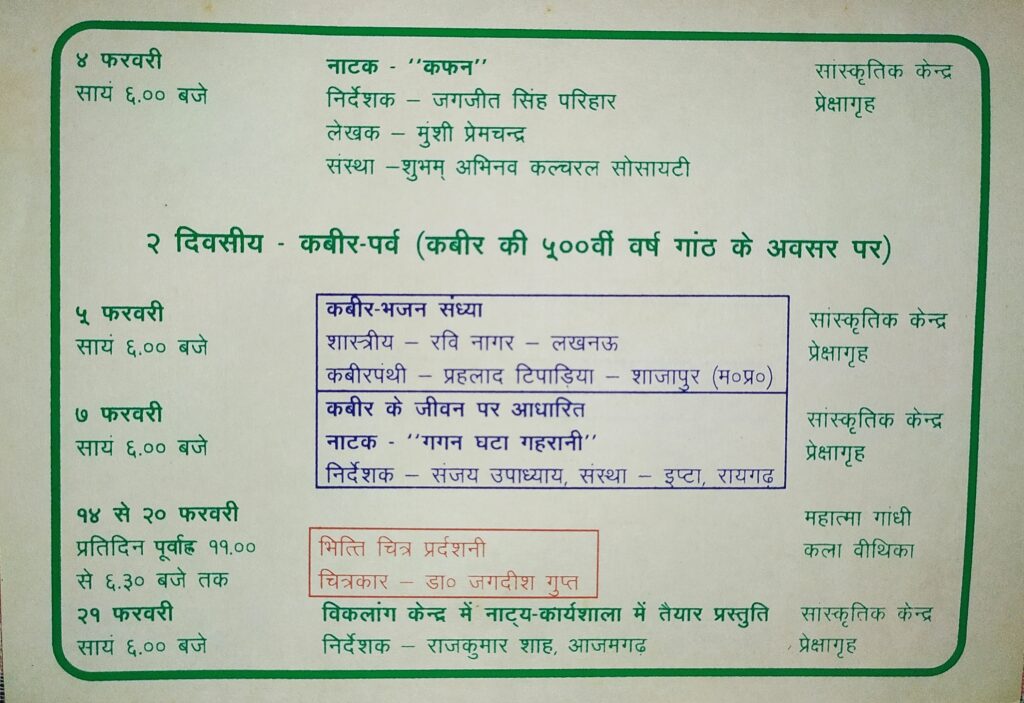 ४ फरवरी
सायं ६.०० बजे
नाटक - ''कफन''
निर्देशक – जगजीत सिंह परिहार
लेखक – मुंशी प्रेमचन्द्र
संस्था –शुभम् अभिनव कल्चरल सोसायटी
सांस्कृतिक केन्द्र
प्रेक्षागृह
२ दिवसीय - कबीर-पर्व (कबीर की ५००वीं वर्ष गांठ के अवसर पर)
५ फरवरी
सायं ६.०० बजे
कबीर-भजन संध्या
शास्त्रीय – रवि नागर – लखनऊ
कबीरपंथी – प्रहलाद टिपाड़िया – शाजापुर (म०प्र०)
सांस्कृतिक केन्द्र
प्रेक्षागृह
७ फरवरी
सायं ६.०० बजे
कबीर के जीवन पर आधारित
नाटक - ''गगन घटा गहरानी''
निर्देशक – संजय उपाध्याय, संस्था – इप्टा, रायगढ़
सांस्कृतिक केन्द्र
प्रेक्षागृह
१४ से २० फरवरी
प्रतिदिन पूर्वाह्न ११.००
से ६.३० बजे तक
भित्ति चित्र प्रर्दशनी
चित्रकार – डा० जगदीश गुप्त
महात्मा गांधी
कला वीथिका
२१ फरवरी
सायं ६.०० बजे
विकलांग केन्द्र में नाट्य-कार्यशाला में तैयार प्रस्तुति
निर्देशक – राजकुमार शाह, आजमगढ़
सांस्कृतिक केन्द्र
प्रेक्षागृह